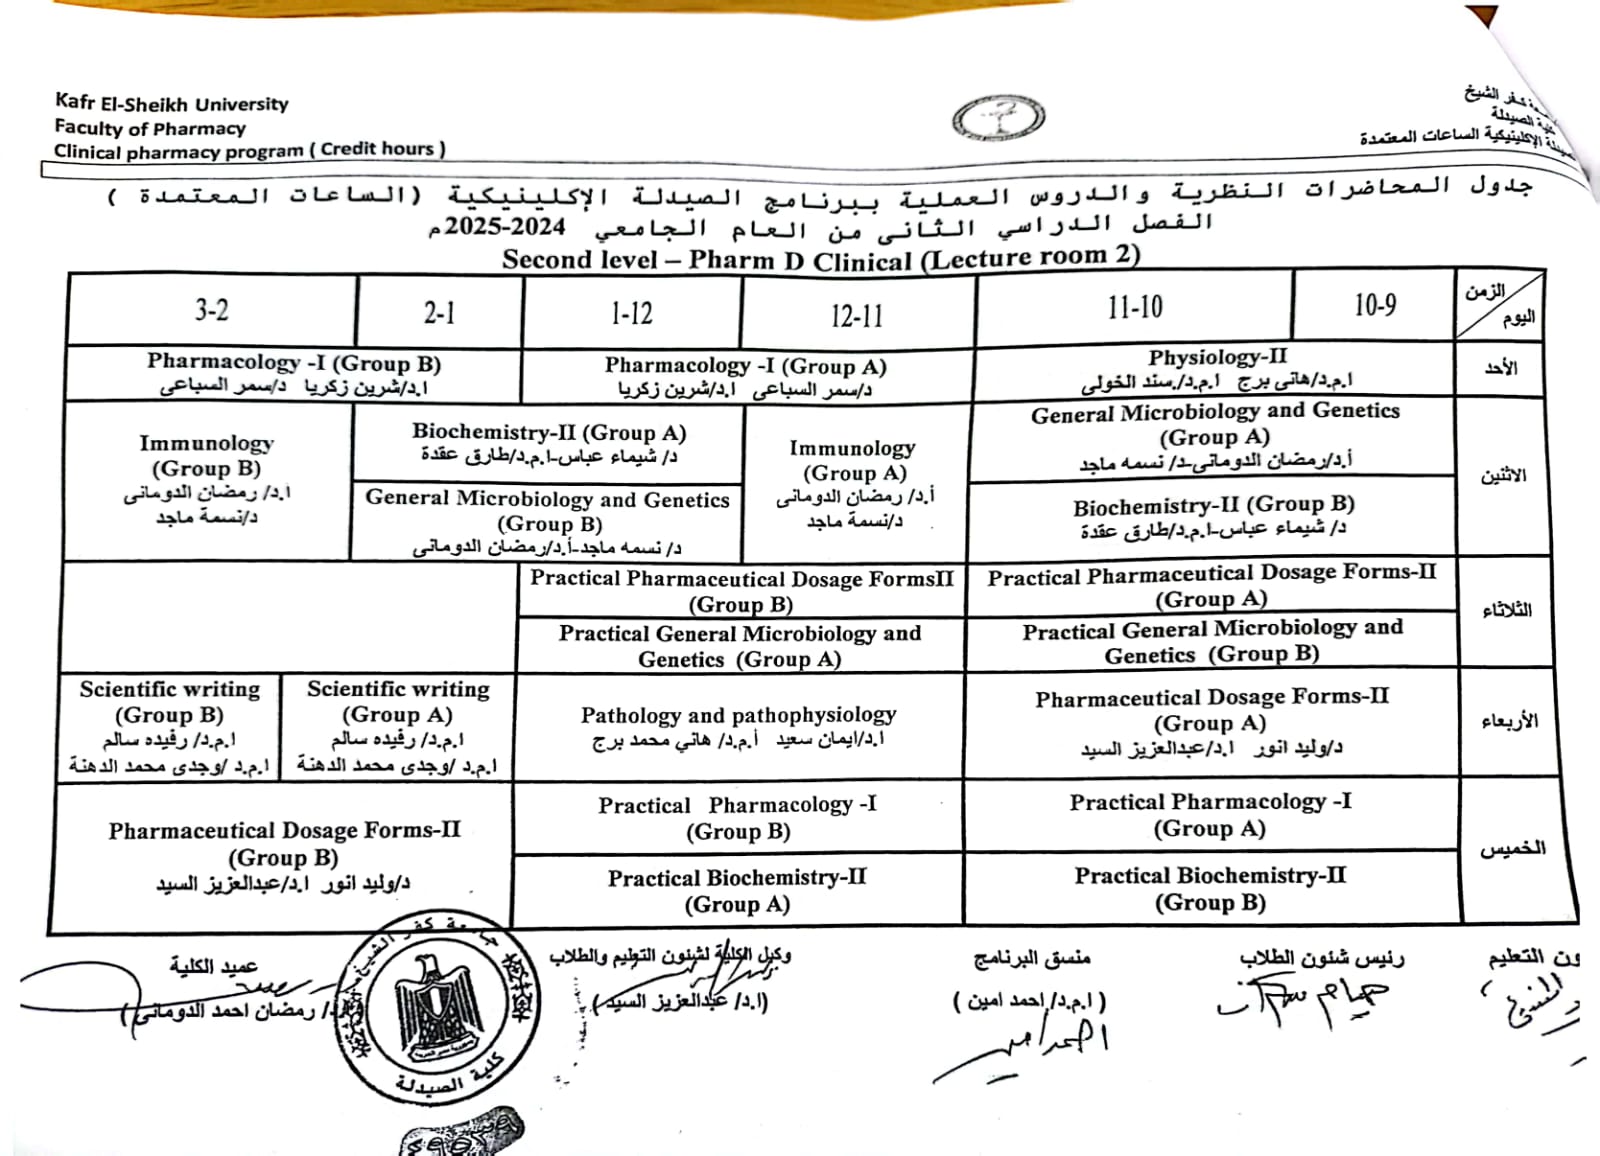 Kafr El-Sheikh University
Faculty of Pharmacy
Clinical pharmacy program ( Credit hours )
كفر الشيخ
كلية الصيدلة
الإكلينيكية الساعات المعتمدة
جدول المحاضرات النظرية والدروس العملية ببرنامج الصيدلة الإكلينيكية (الساعات المعتمدة )
الفصل الدراسي الثانى من العام الجامعي 2024-2025م
Second level – Pharm D Clinical (Lecture room 2)
الزمن
اليوم
10-9
11-10
12-11
1-12
2-1
3-2
الأحد
Physiology-II
ا.م.د/هانى برج ا.م.د/سند الخولى
Pharmacology -I (Group A)
د/سمر السباعى ا.د/شرين زكريا
Pharmacology -I (Group B)
ا.د/شرين زكريا د/سمر السباعى
الاثنين
General Microbiology and Genetics
(Group A)
أ.د/رمضان الدومانى-د/ نسمه ماجد
Biochemistry-II (Group B)
د/ شيماء عباس-ا.م.د/طارق عقدة
Immunology
(Group A)
أ.د/ رمضان الدومانى
د/نسمة ماجد
Biochemistry-II (Group A)
د/ شيماء عباس-ا.م.د/طارق عقدة
General Microbiology and Genetics
(Group B)
د/ نسمه ماجد-أ.د/رمضان الدومانى
Immunology
(Group B)
ا.د/ رمضان الدومانى
د/نسمة ماجد
الثلاثاء
Practical Pharmaceutical Dosage Forms-II
(Group A)
Practical General Microbiology and
Genetics (Group B)
Practical Pharmaceutical Dosage FormsII
(Group B)
Practical General Microbiology and
Genetics (Group A)
الأربعاء
Pharmaceutical Dosage Forms-II
(Group A)
د/وليد انور ا.د/عبدالعزيز السيد
Pathology and pathophysiology
ا.د/ايمان سعيد أ.م.د/ هاني محمد برج
Scientific writing
(Group A)
ا.م.د/ رفيده سالم
ا.م.د /وجدى محمد الدهنة
Scientific writing
(Group B)
ا.م.د/ رفيده سالم
ا.م.د /وجدى محمد الدهنة
الخميس
Practical Pharmacology -I
(Group A)
Practical Biochemistry-II
(Group B)
Practical Pharmacology -I
(Group B)
Practical Biochemistry-II
(Group A)
Pharmaceutical Dosage Forms-II
(Group B)
د/وليد انور ا.د/عبدالعزيز السيد
ون التعليم
رئيس شئون الطلاب
منسق البرنامج
( ا.م.د/ احمد امين )
احمد امين
وكيل الكلية لشئون التعليم والطلاب
(ا.د/ عبدالعزيز السيد )
عميد الكلية
د/ رمضان احمد الدومانى )
جامعة كفر الشيخ
كلية الصيدلة